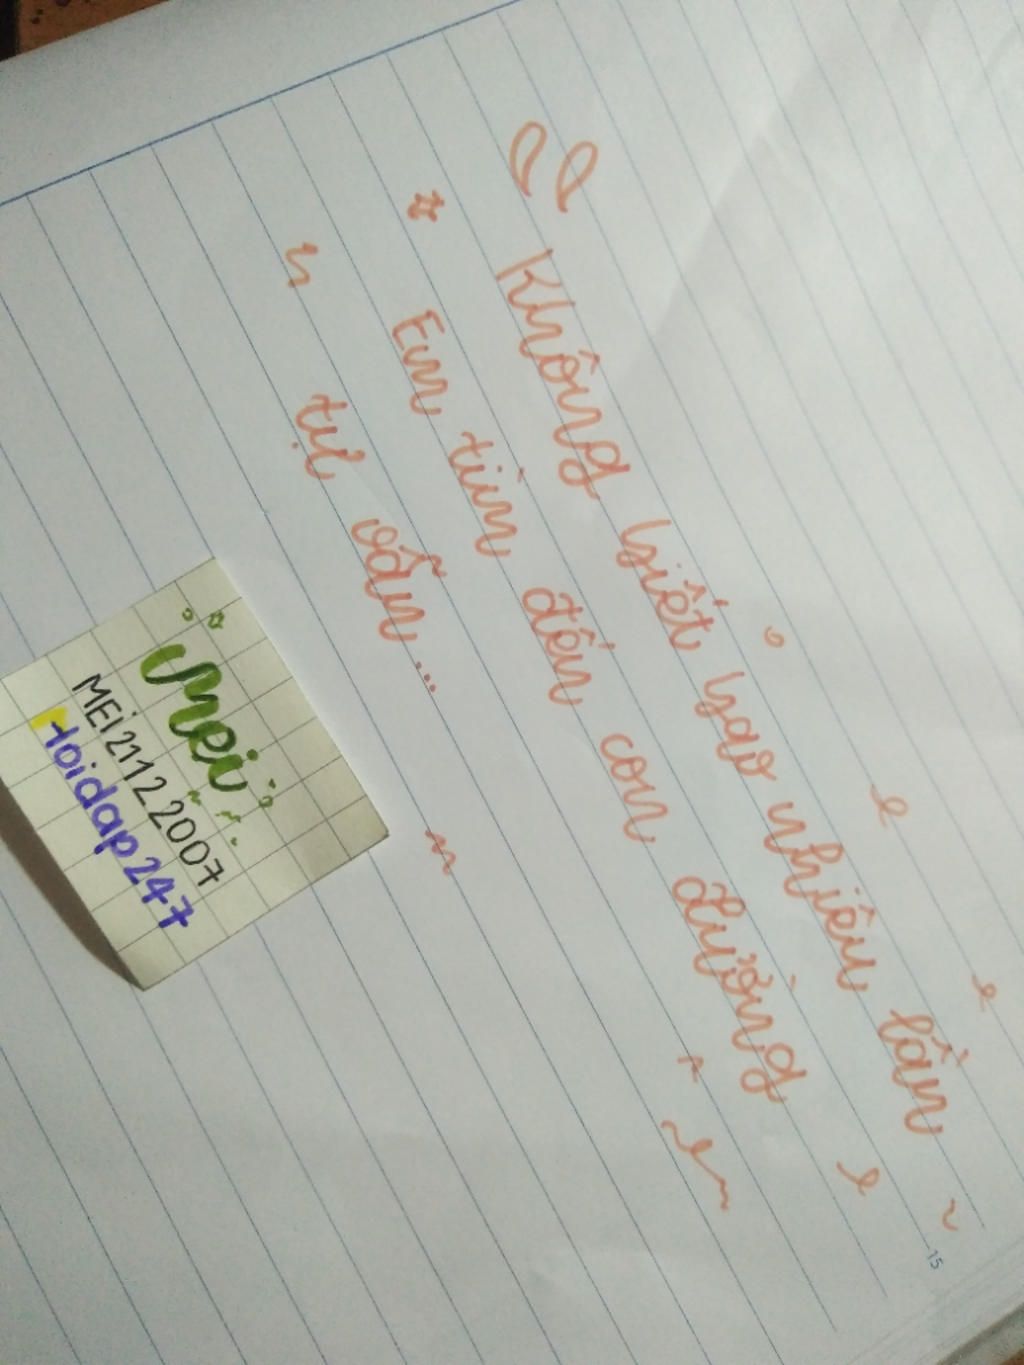 Không biết bao nhiêu lần
Em tìm đến con đường
tự vẫn...
Mei
MEi21122007
toidap247
15